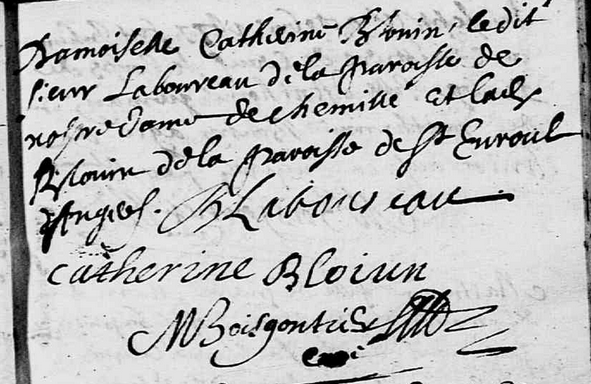 Damoiselle Catherine Blouin, ledit
sieur Laboureau de la Paroisse de
nostre dame de chemillé et lade
Blouin de la Paroisse de St Evroul
d'Angers. B Laboureau
catherine Bloiun
M Boisgontier
curé